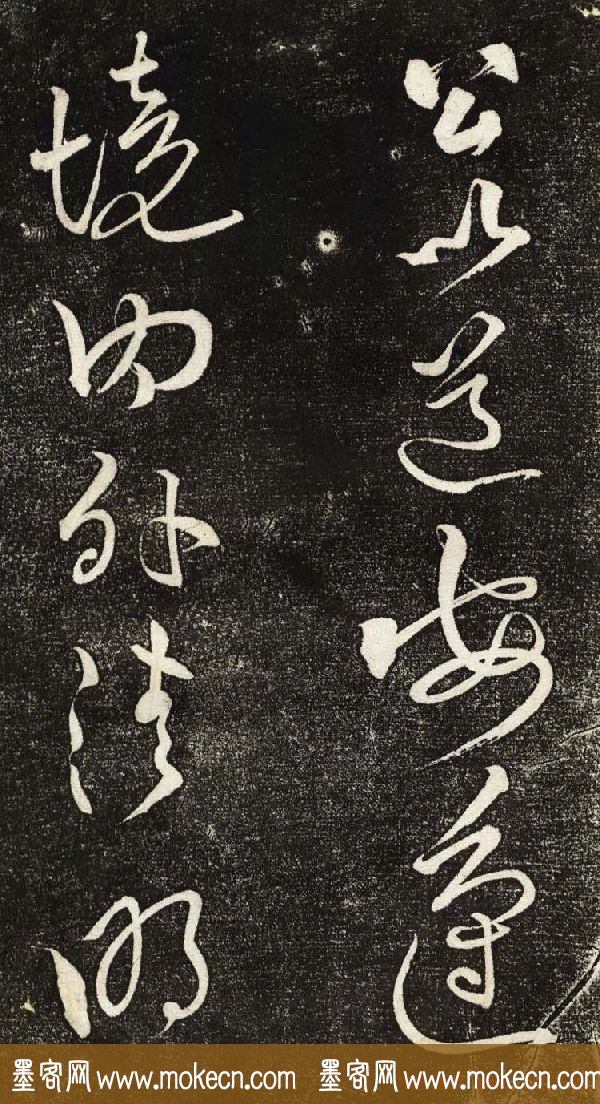 公以道
境内外清明
墨客网 www.mokecn.com 墨客网 www.mokecn.com